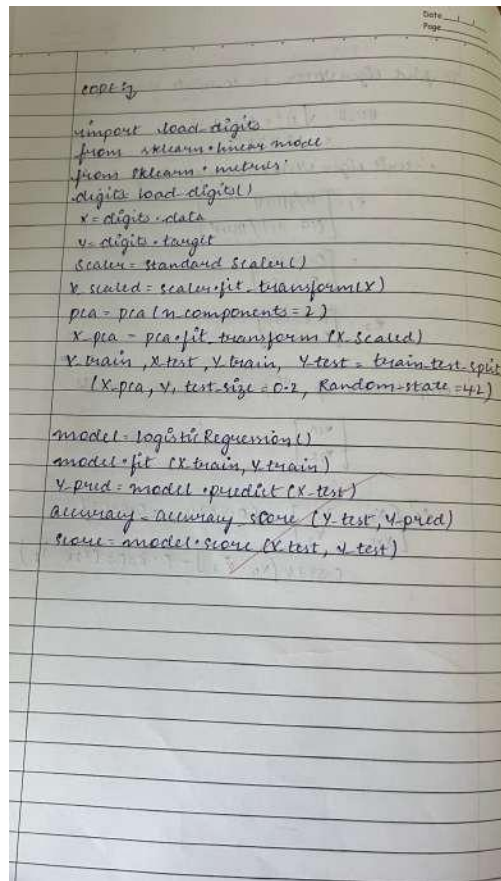 Date
Page
code :-
import load-digits
from sklearn.linear mode
from sklearn.metrics.
digits load-digits()
x = digits.data
y = digits.target
Scaler = standard Scaler()
x scaled = scaler.fit-transform(x)
pca = pca (n components = 2)
x-pca = pca.fit_transform (x_scaled)
x-train, x-test, y-train, y-test = train-test-split
(x-pca, y, test-size = 0.2, Random-state = 42)
model = logistic Regression()
model.fit (x-train, y-train)
y-pred = model.predict (x-test)
accuracy = accuracy-score (y-test, y-pred)
score = model.score (x-test, y-test)